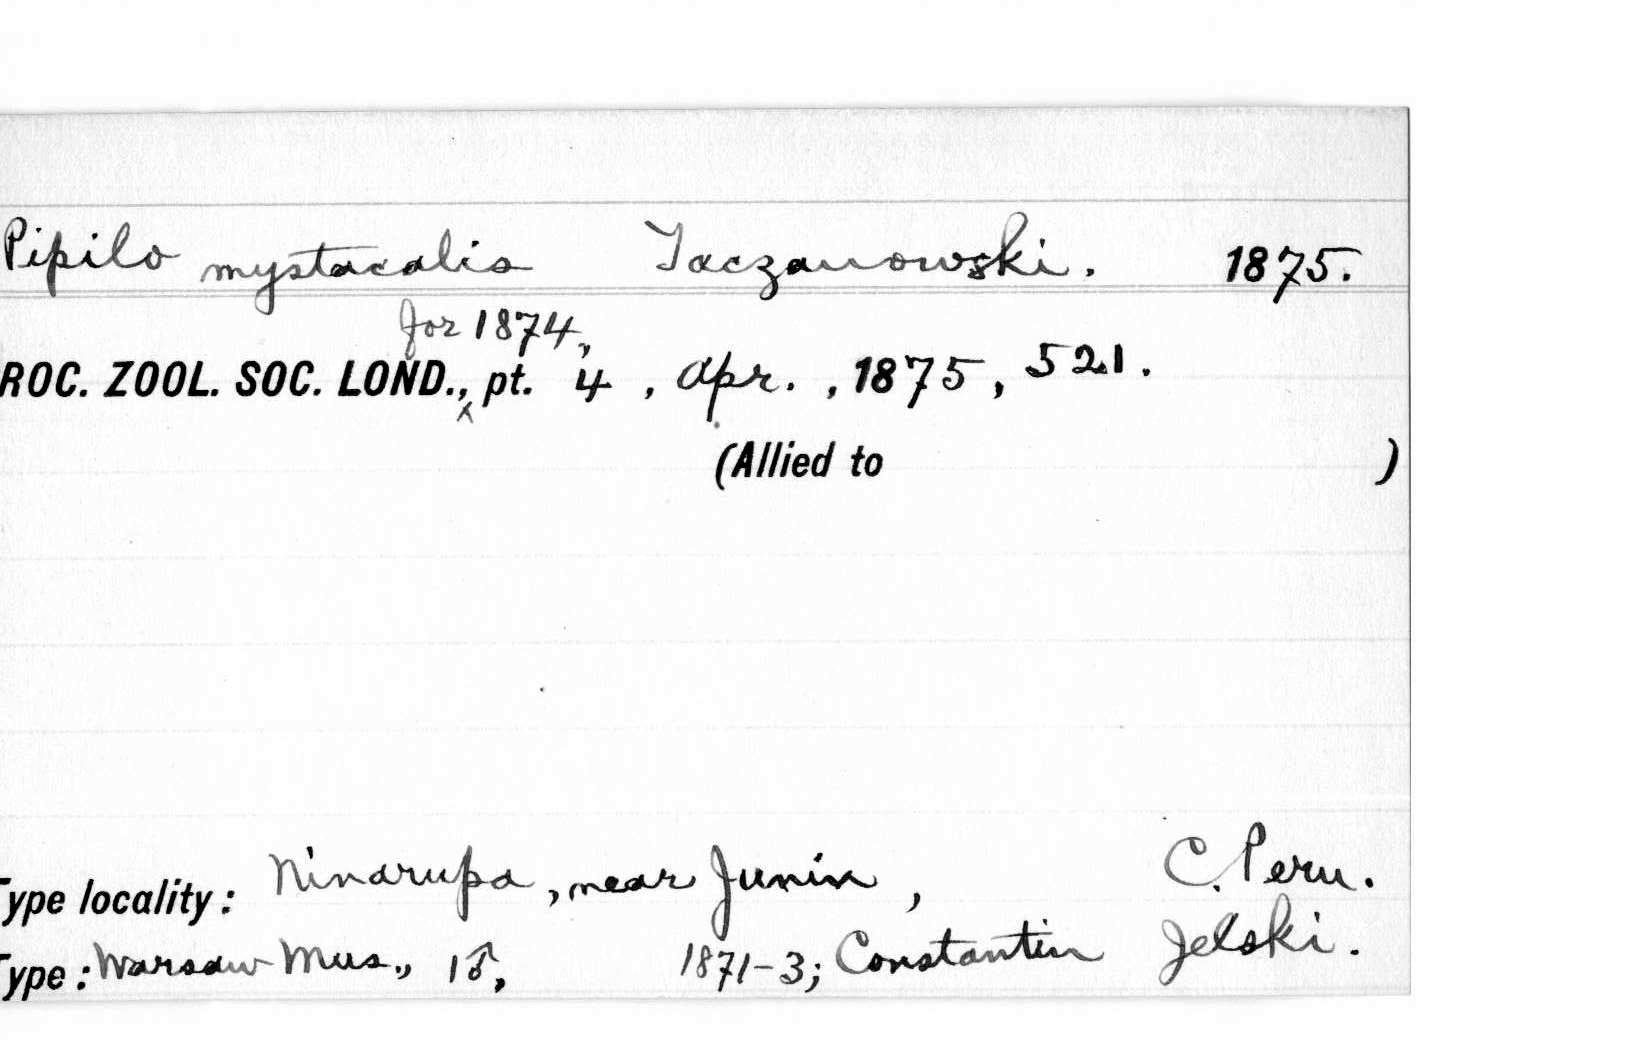 Pipilo mystacalis Taczanowski. 1875.
for 1874,
ROC. ZOOL. SOC. LOND., pt. 4, Apr., 1875, 521.
(Allied to )
Type locality: Ninarupa, near Junin, C. Peru.
Type: Warsaw Mus., 1♂, 1871-3; Constantin Jelski.